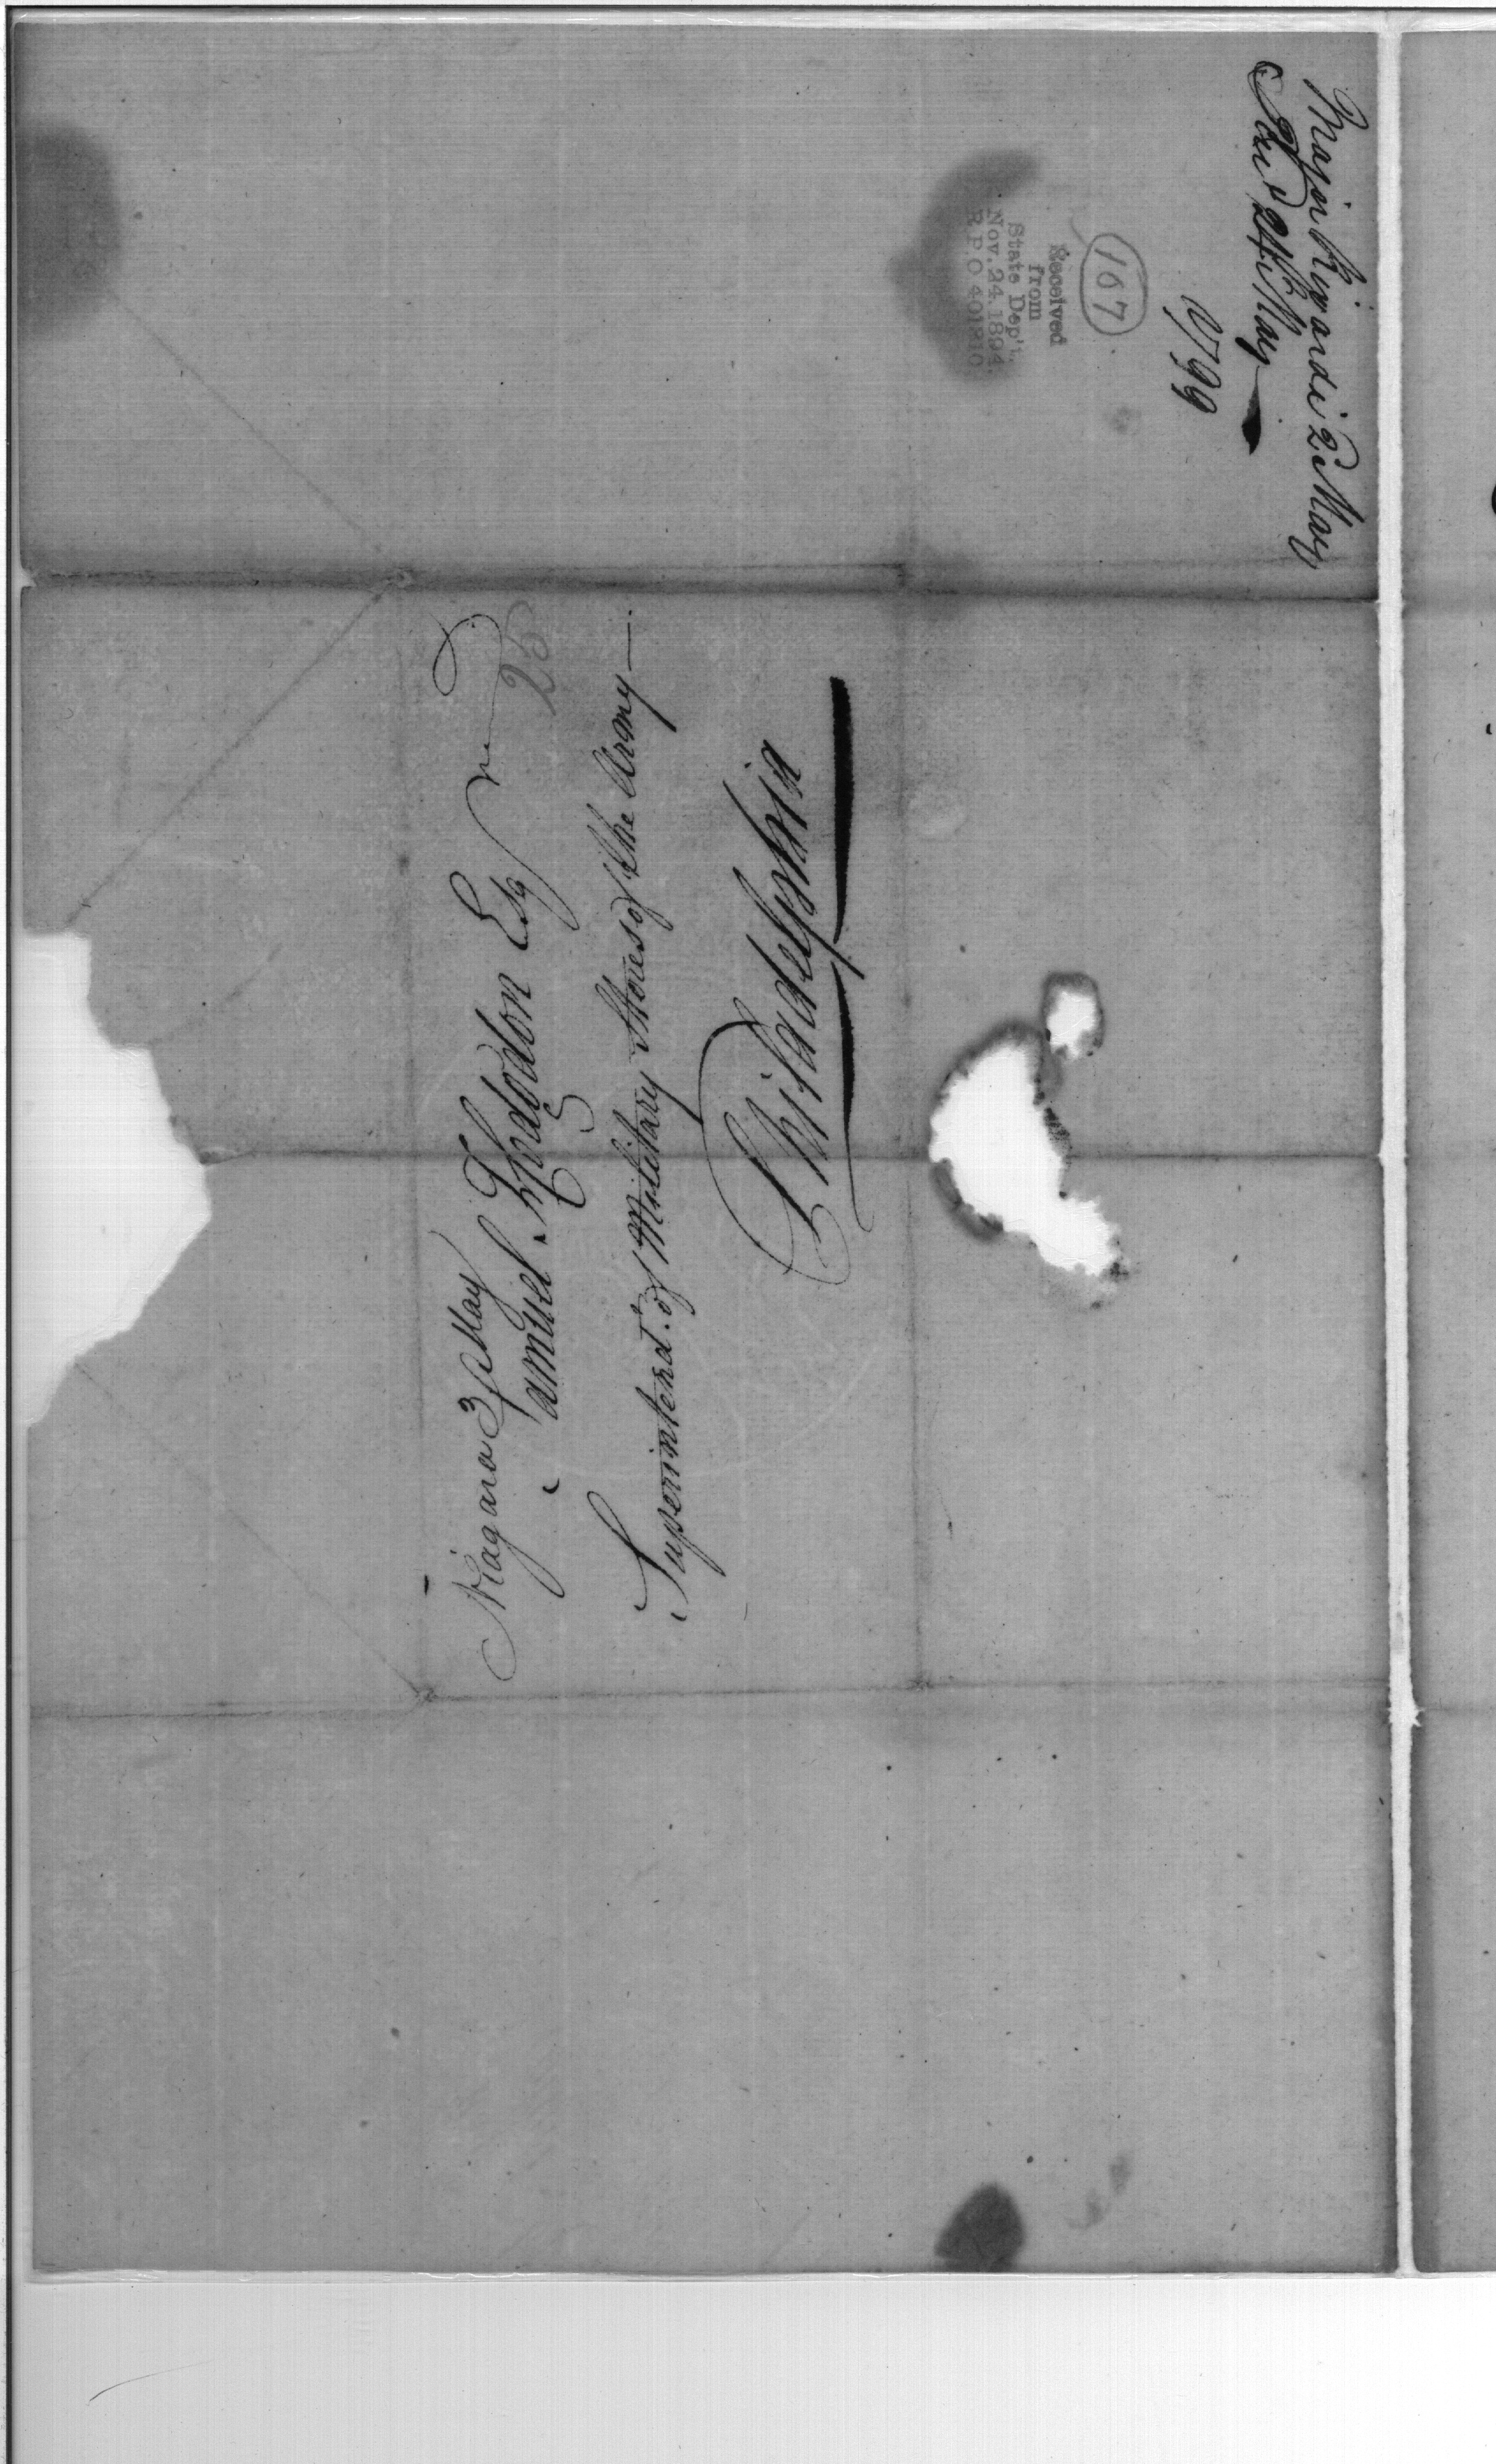 Major Rivardi 2 May
Ans.d 24 May
1799
167
Received
from
State Dep't.
Nov. 24. 1894.
R.P.O 401210
Niagara 3 May
25
Samuel Hodgdon Esqr
Superintend.t of Military Stores of the Army
Philadelphia